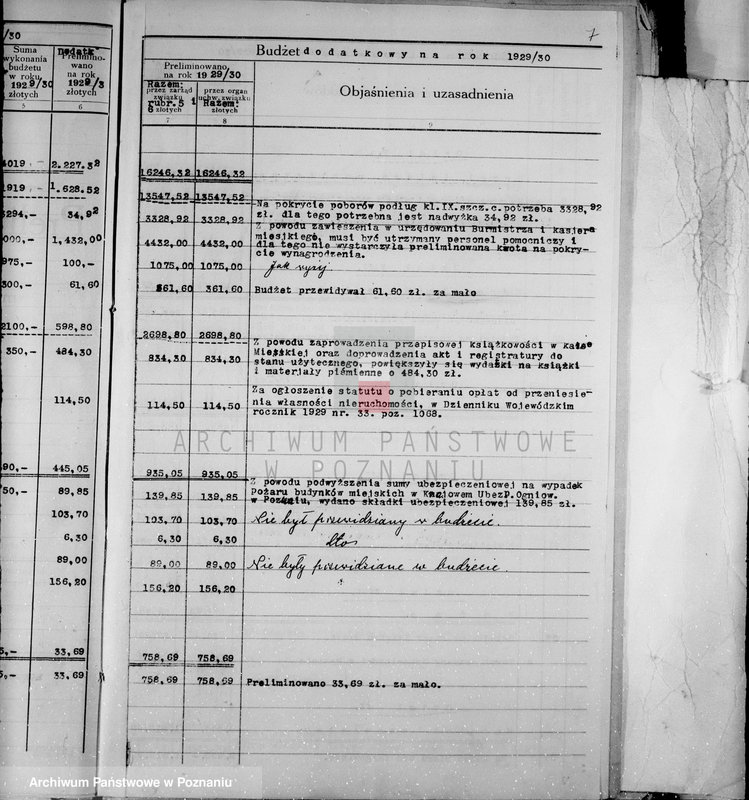 /30
7
Suma
wykonania
budżetu
w roku
1929/30
złotych
5
Dodatk
Prelimino-
wano
na rok
1929/3
złotych
6
4019 - 2.227.32
1919 - 1.628.52
3294,- 34,92
000,- 1,432,00
975,- 100,-
300,- 61,60
2100,- 598,80
350,- 484,30
114,50
90,- 445,05
50,- 89,85
103,70
6,30
89,00
156,20
33,69
33,69
Budżet dodatkowy na rok 1929/30
Preliminowano,
na rok 1929/30
Razem:
przez zarząd
związku
rubr. 5 i
6 złotych
7
przez organ
uchw. związku
Razem:
złotych
8
Objaśnienia i uzasadnienia
9
16246,32 16246,32
13547,52 13547,52
Na pokrycie poborów podług kl.IX.szcz.c.potrzeba 3328,92
3328,92 3328,92 zł. dla tego potrzebna jest nadwyżka 34,92 zł.
Z powodu zawieszenia w urzędowaniu Burmistrza i kasjera
4432,00 4432,00 miejskiego, musi być utrzymany personel pomocniczy i
dla tego nie wystarczyła preliminowana kwota na pokry-
cie wynagrodzenia.
1075,00 1075,00 jak wyżej
361,60 361,60 Budżet przewidywał 61,60 zł. za mało
2698,80 2698,80
Z powodu zaprowadzenia przepisowej książkowości w Kasie
834,30 834,30 Miejskiej oraz doprowadzenia akt i registratury do
stanu użytecznego, powiększyły się wydatki na książki
i materjały piśmienne o 484.30 zł.
Za ogłoszenie statutu o pobieraniu opłat od przeniesie-
114,50 114,50 nia własności nieruchomości, w Dzienniku Wojewódzkim
rocznik 1929 nr. 33. poz. 1068.
ARCHIWUM PAŃSTWOWE
W POZNANIU
935,05 935,05
Z powodu podwyższenia sumy ubezpieczeniowej na wypadek
139,85 139,85 Pożaru budynków miejskich w Krajowem Ubezp.Ogniow.
w Poznaniu, wydano składki ubezpieczeniowej 139,85 zł.
103,70 103,70 Nie był przewidziany w budżecie.
6,30 6,30 dto
89,00 89,00 Nie były przewidziane w budżecie.
156,20 156,20
758,69 758,69
758,69 758,69 Preliminowano 33,69 zł. za mało.
Archiwum Państwowe w Poznaniu